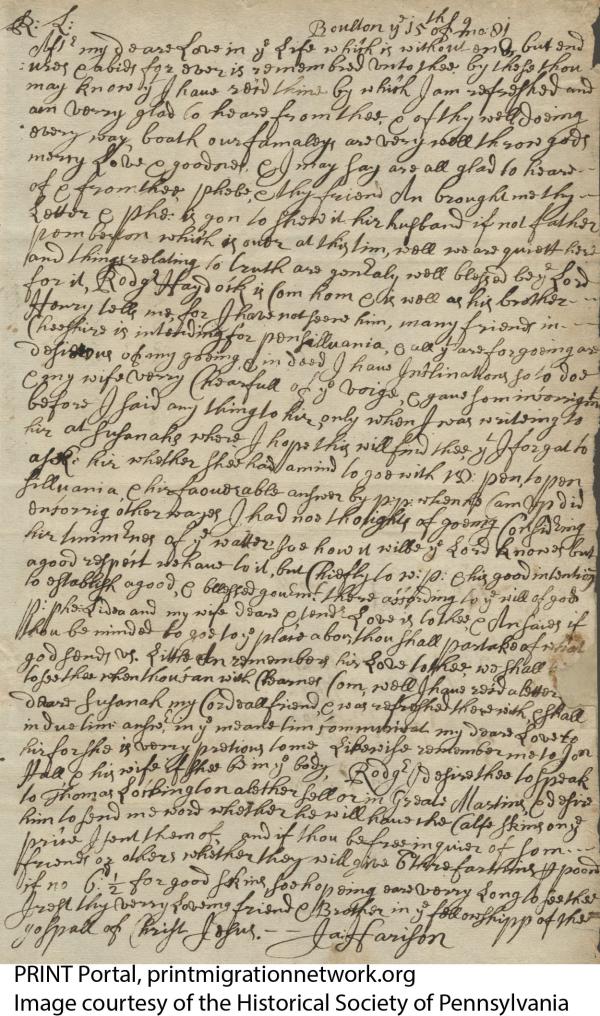 R: L: Boulton ye 15th of 9 mo: 81
my deare Love in ye Life which is without end, but end
ures & abids for ever is remembred unto thee by these thou
may know yt I have rec'd thine by which I am refreshed and
am verry glad to heare from thee & of thy well doeing
every way, boath our famaleys are very well throw gods
mercy Love & goodnes, & I may say are all glad to heare
of & from thee, phebe, & thy friend An brought me thy
Letter & phe: is gon to shew it hir husband if not father
pemberton which is over at this tim, well we are quiett here
and things relating to truth are genraly well blessed be ye Lord
for it, Rodgr Haydock is Com hom & is well as his brother
Henry tells me, for I have not seene him, many friends in
Cheeshire is intending for pensilluania, & all yt are for goeing are
desierous of my goeing & in deed I have Inclinations so to doe
& my wife verry Chearfull of ye voige, & gave som
before I said any thing to hir, only when I was writeing to
hir at Susanahs where I hope this will find thee yt I forgat to
aske hir whether shee had a mind to goe with pen, to pen
silluania, & hir favuerable answer by pp: when he Cam up did
other wayes, I had noe thoughts of goeing Considring
hir timmrnes of ye watter soe how it will be ye Lord knowes but
a good respect we have to it, but Chiefly to w: p: & his good intention
to establish a good, & blessed there according to ye will of god
p: phe: Lidea and my wife deare & tendr Love is to thee, & An saies if
thou be minded to goe to ye place abov: thou shall partake of what
god sends us. Little An remembers hir Love to thee, we shall
to see thee when thou can with Barnes Com, well I have rec'd a letter
deare Susanah my Cordeall friend, & was refreshed there with, & shall
in due tim answr, in ye meane tim communicat my deare Love to
hir for she is verry pretious to me Likewise remember me to Jon
Hall & his wife if shee be in ye body, Rodgr I desire thee to speak
to Thomas a lether sellor in Greate Martins, & desire
him to send me word whether he will have the Calfe skins on ye
price I sent them of, and if thou be free inquier of som
friends or others whether they will give 6 thre farthins p poond
if no 6d ½ for good skins soe hopeing eare verry Long to see thee
I rest thy verry Loveing friend & Brother in ye fellowshipp of the
gospall of Christ Jesus. Ja: Harison
PRINT Portal, printmigrationnetwork.org
Image courtesy of the Historical Society of Pennsylvania